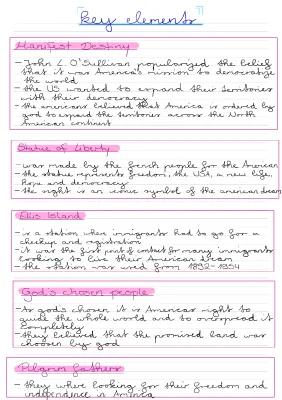 key elements
Manifest Destiny
- John L. O'Sullivan popularized the belief
that it was America's mission to democratize
the world
- the US wanted to expand their territories
with their democracy
- the americans believed that America is ordered by
god to expand the territories across the North
American continent
Statue of Liberty
- was made by the french people for the American
- the statue represents freedom, the USA, a new life,
hope and democracy
- the sight is an iconic symbol of the american dream
Ellis Island
- is a station where immigrants had to go for a
checkup and registration
- it was the first point of contact for many immigrants
looking to live their American dream
- the station was used from 1892-1954
God's chosen people
- As gods chosen it is Americas right to
guide the whole world and to overspread it
completely
- they believed that the promised land was
chosen by god
Pilgrim fathers
- they where looking for their freedom and
independence in America